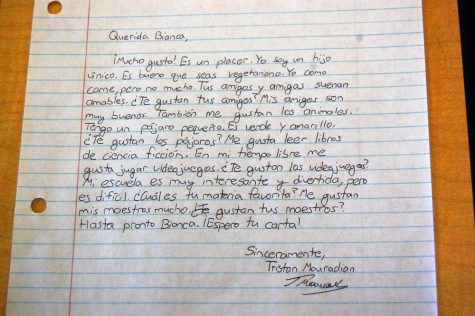 Querida Bianca,
¡Mucho gusto! Es un placer. Yo soy un hijo
único. Es bueno que seas vegetariano. Yo como
carne, pero no mucho. Tus amigos y amigas suenan
amables. ¿Te gustan tus amigos? Mis amigos son
muy buenos. También me gustan los animales.
Tengo un pájaro pequeño. Es verde y amarillo.
¿Te gustan los pájaros? Me gusta leer libros
de ciencia ficción. En mi tiempo libre me
gusta jugar videojuegos. ¿Te gustan los videojuegos?
Mi escuela es muy interesante y divertida, pero
es difícil. ¿Cuál es tu materia favorita? Me gustan
mis maestros mucho. ¿Te gustan tus maestros?
Hasta pronto Bianca. ¡Espero tu carta!
Sinceramente,
Tristan Mouradian